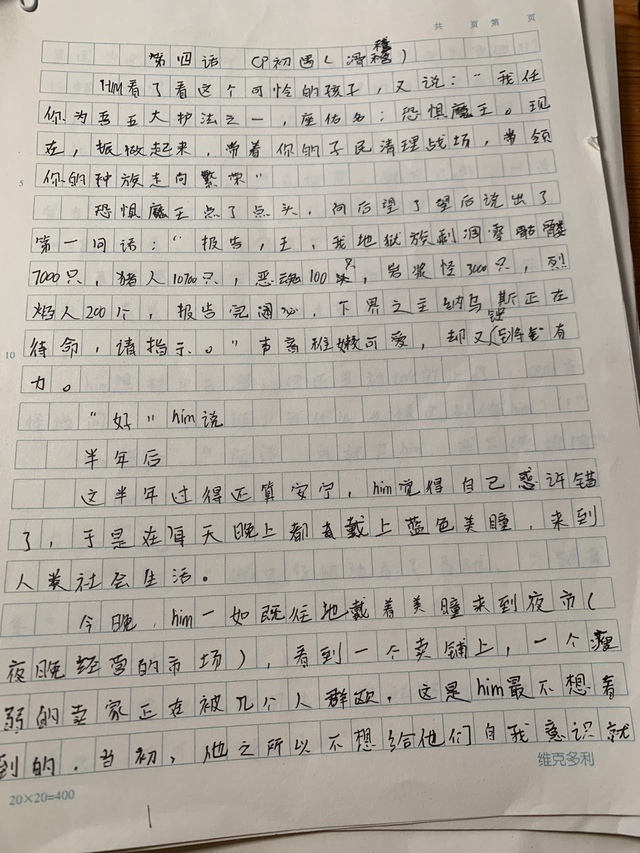 共 页 第 页
第四话 CP初遇(滑稽)
HIM看了看这个可怜的孩子,又说:"我任
你为吾五大护法之一,座佑名:恐惧魔王。现
在,振做起来,带着你的子民清理战场,带领
5
你的种族走向繁荣"
恐惧魔王点了点头,向后望了望后说出了
第一问话:"报告,王,我地狱族剩凋零骷髅
7000只,猪人10700只,恶魂100只,岩浆怪3000只,烈
焰人200个,报告完毕,下界之主纳乌斯正在
10
待命,请指示。"声音稚嫩可爱,却又铿锵有
力。
"好"him说
半年后
这半年过得还算安宁,him觉得自己惑许错
了,于是在每天晚上都去戴上蓝色美瞳,来到
人类社会生活。
今晚,him一如既往地戴着美瞳来到夜市(
夜晚经营的市场),看到一个卖铺上,一个瘦
弱的卖家正在被几个人群殴,这是him最不想看
到的,当初,他之所以不想给他们自我意识就
20×20=400
维克多利